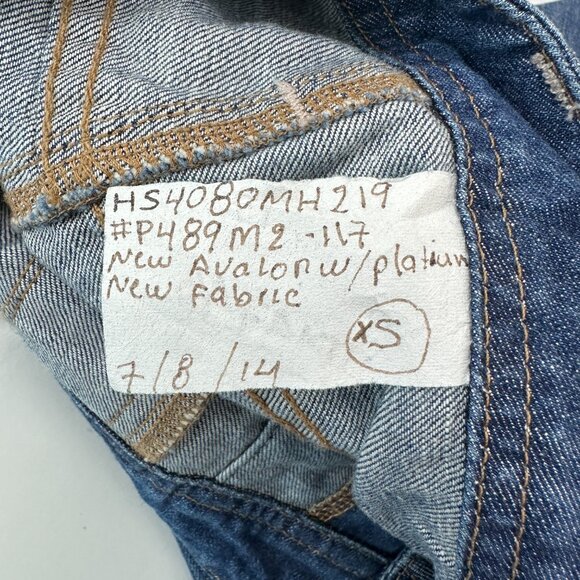 HS4080MH219
#P489M2-117
New Avalon w/platium
New Fabric
XS
7/8/14